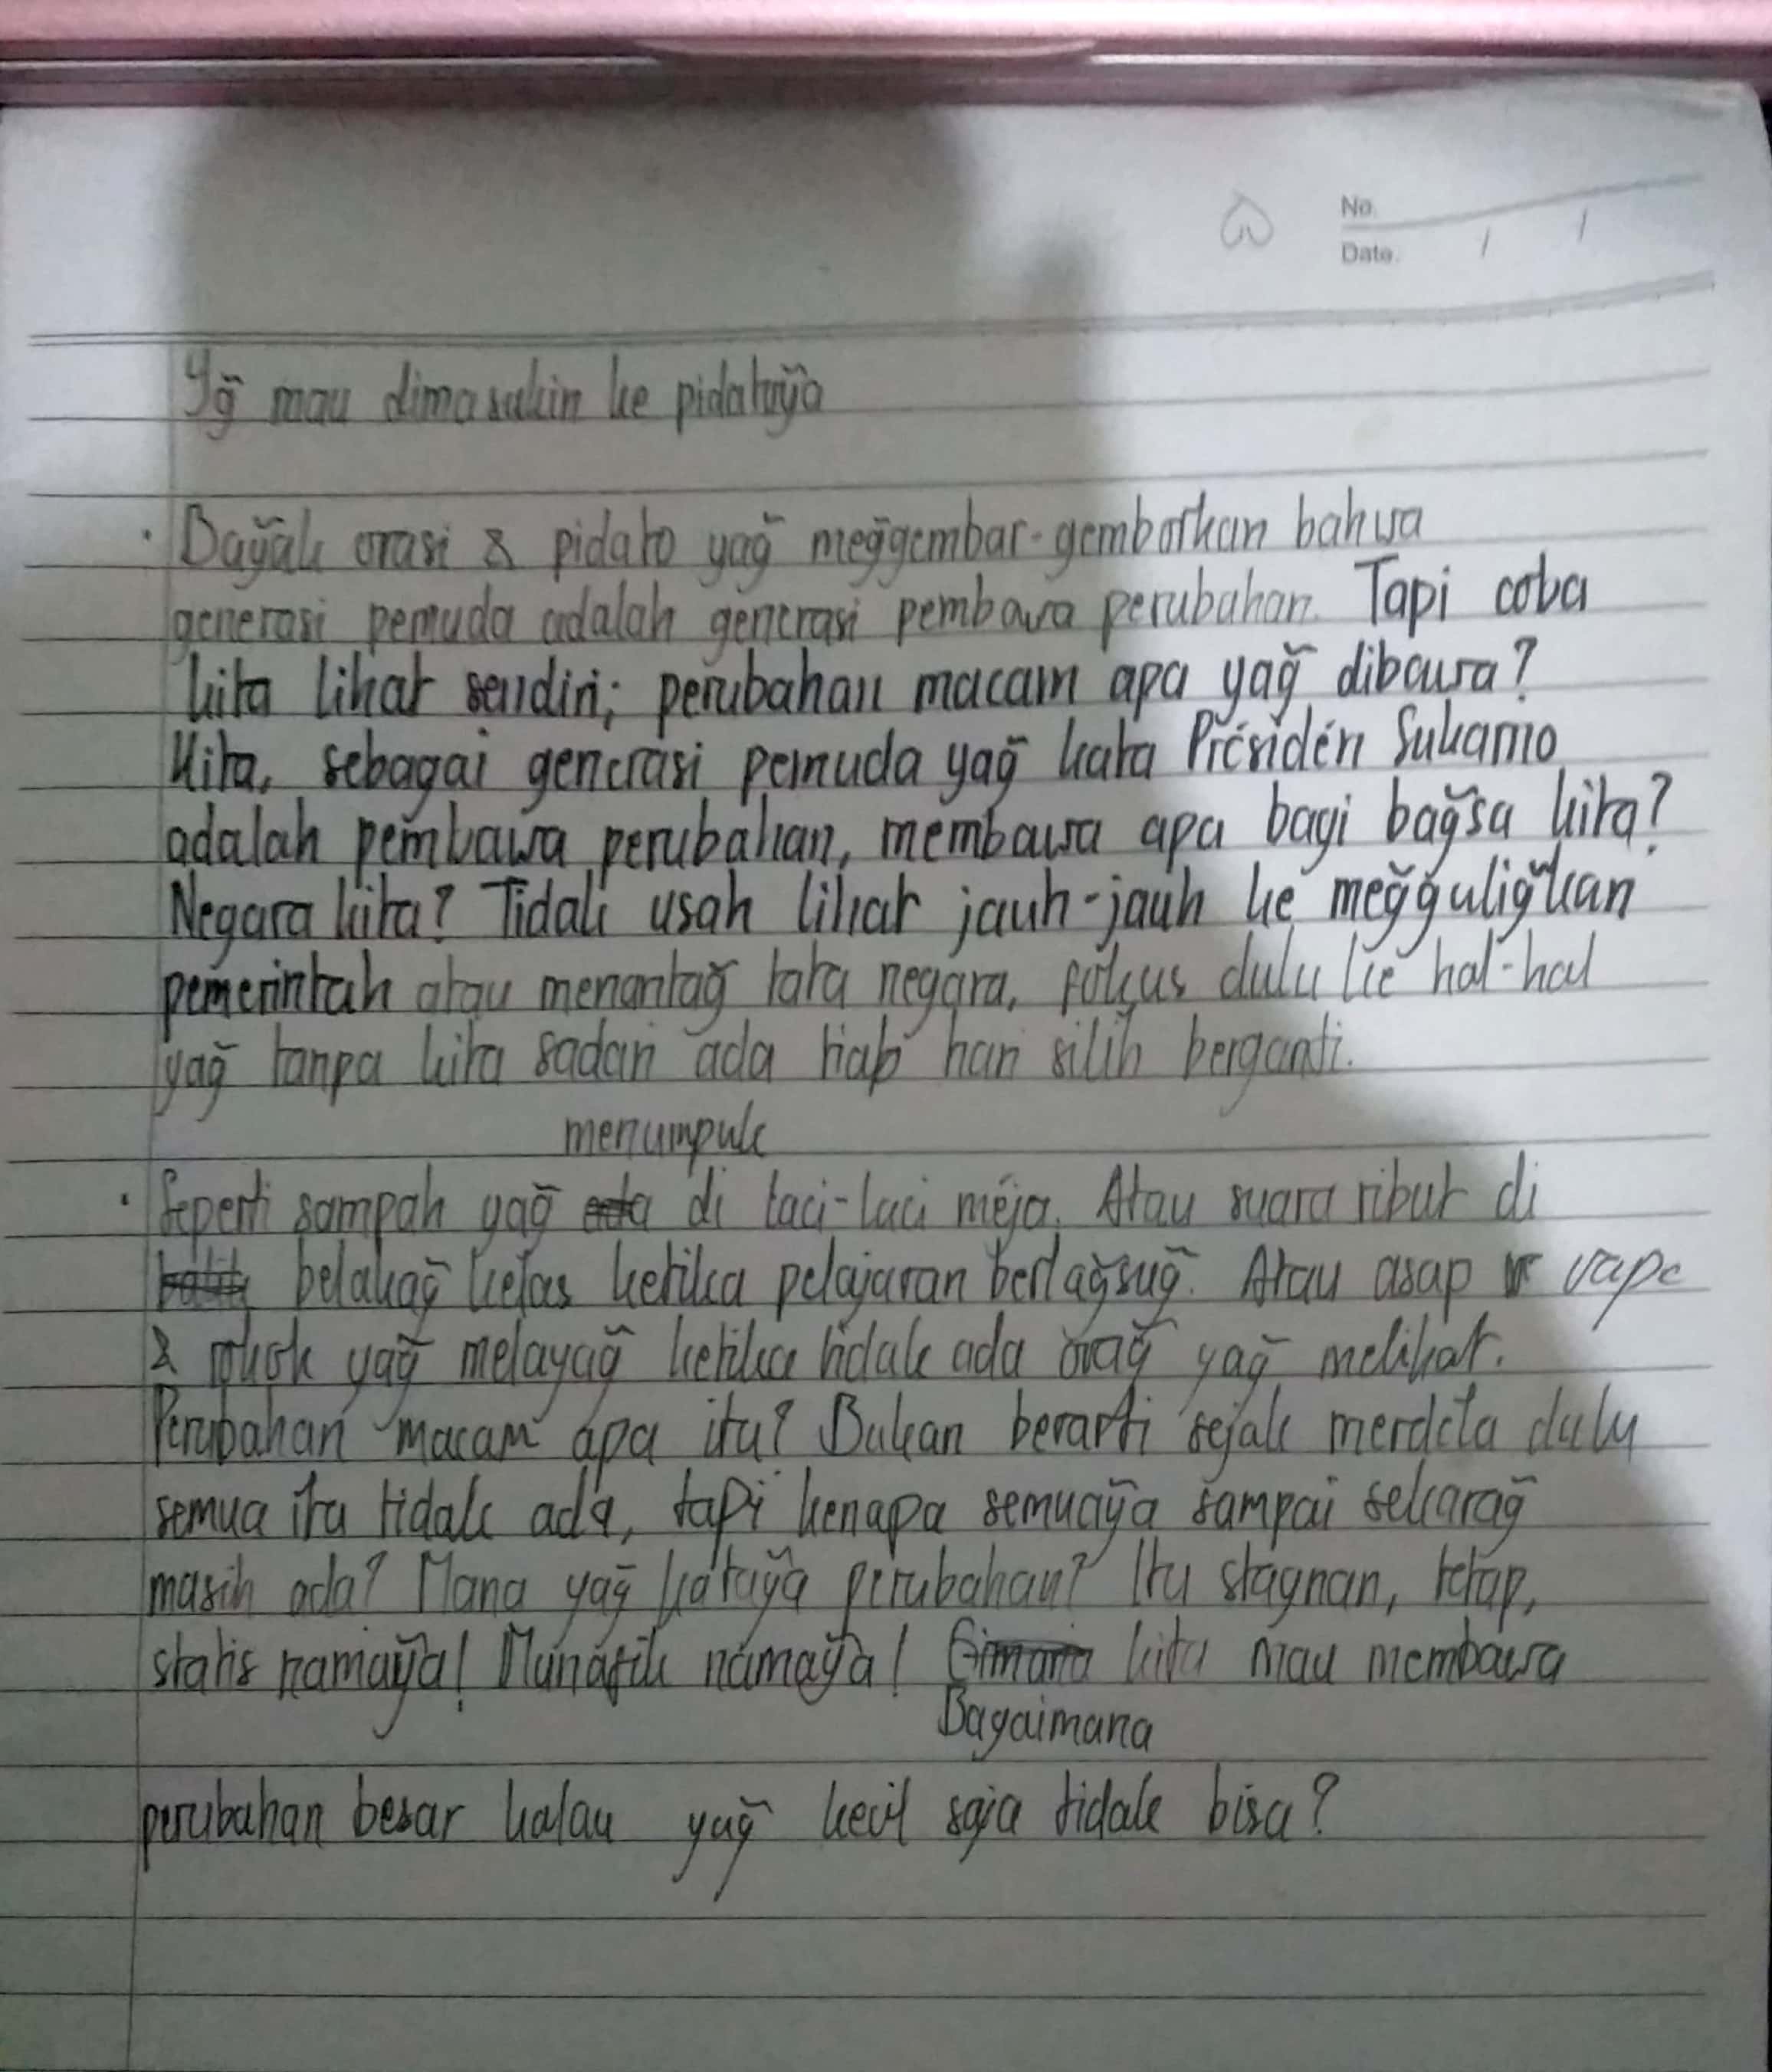 No.
Date.
Yg̃ mau dimasukin ke pidatoỹa
· Baỹak orasi & pidato yag̃ meg̃gembar-gemborkan bahwa
generasi pemuda adalah generasi pembawa perubahan. Tapi coba
kita lihat sendiri; perubahan macam apa yag̃ dibawa?
Kita, sebagai generasi pemuda yag̃ kata Présidén Sukarno
adalah pembawa perubahan, membawa apa bagi bag̃sa kita?
Negara kita? Tidak usah lihat jauh-jauh ke meg̃gulig̃kan
pemerintah atau menantag̃ tata negara, fokus dulu ke hal-hal
yag̃ tanpa kita sadari ada tiap hari silih berganti.
menumpuk
· Seperti sampah yag̃ ada di laci-laci méja. Atau suara ribut di
belakag̃ kelas ketika pelajaran berlag̃sug̃. Atau asap vape
& rokok yag̃ melayag̃ ketika tidak ada orag̃ yag̃ melihat.
Perubahan macam apa itu? Bukan berarti sejak merdeka dulu
semua itu tidak ada, tapi kenapa semuaỹa sampai sekarag̃
masih ada? Mana yag̃ kataỹa perubahan? Itu stagnan, tetap,
statis namaỹa! Munafik namaỹa! Gimana kita mau membawa
Bagaimana
perubahan besar kalau yag̃ kecil saja tidak bisa?